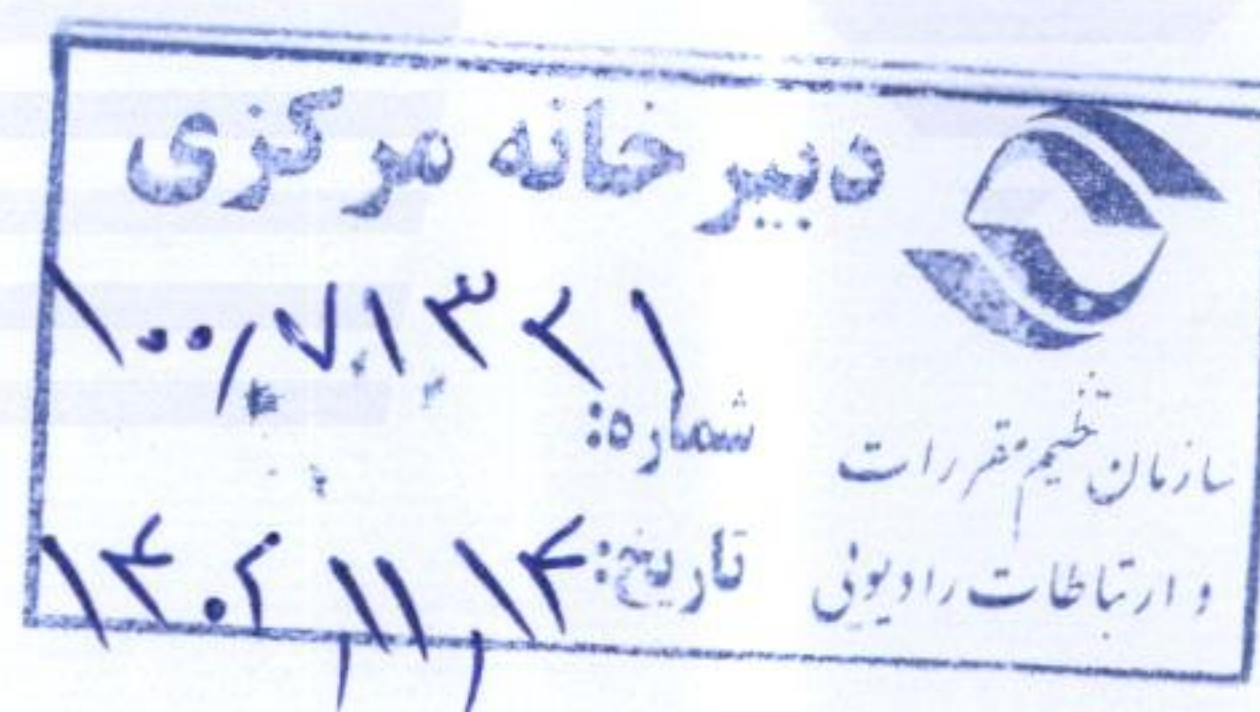 دبیرخانه مرکزی
سازمان تنظیم مقررات
و ارتباطات رادیویی
شماره: ۱۰۰/۷۱۳۲۱
تاریخ: ۱۴۰۲/۱۱/۱۴